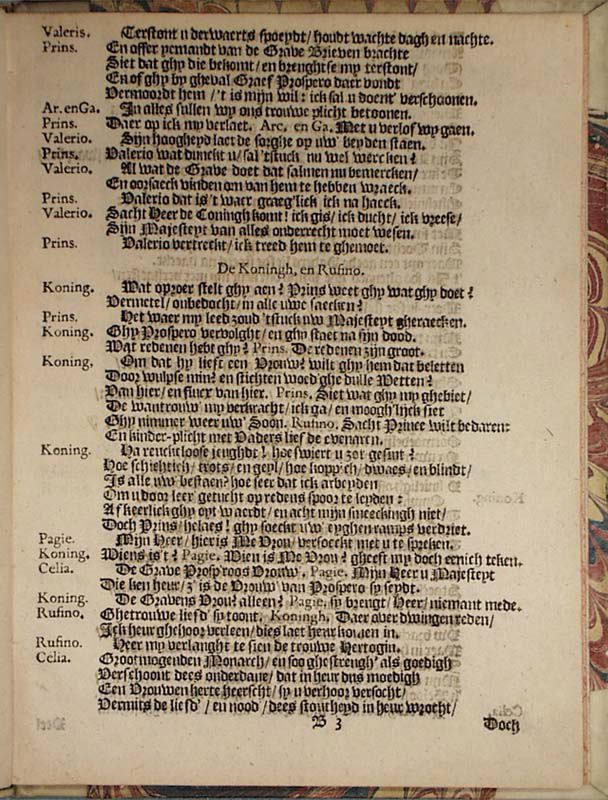 Valeris. Terstont u derwaerts spoeydt/ houdt wachte dagh en nachte.
Prins. En offer yemandt van de Grave Brieven brachte
Siet dat ghy die bekomt/ en brenghtse my terstont/
En of ghy by gheval Graef Prospero daer vondt
Vermoordt hem/ 't is mijn wil: ick sal u doent' verschoonen.
Ar. en Ga. In alles sullen wy ons trouwe plicht betoonen.
Prins. Daer op ick my verlaet. Arc. en Ga. Met u verlof wy gaen.
Valerio. Sijn hoogheyd laet de sorghe op uw' beyden staen.
Prins. Valerio wat dunckt u/ sal 'tstuck nu wel wercken?
Valerio. Al wat de Grave doet dat salmen nu bemercken/
En oorsaeck vinden om van hem te hebben wraeck.
Prins. Valerio dat is 't waer graeg'lick ick na haeck.
Valerio. Sacht Heer de Coningh komt! ick gis/ ick ducht/ ick vreese/
Sijn Majesteyt van alles onderrecht moet wesen.
Prins. Valerio vertreckt/ ick treed hem te ghemoet.
De Koningh, en Rufino.
Koning. Wat oproer stelt ghy aen? Prins weet ghy wat ghy doet?
Vermetel/ onbedocht/ in alle uwe saecken?
Prins. Het waer my leed zoud 'tstuck uw Majesteyt gheraecken.
Koning. Ghy Prospero vervolght/ en ghy staet na sijn dood.
Wat redenen hebt ghy? Prins. De redenen zijn groot.
Koning. Om dat hy lieft een Vrouw? wilt ghy hem dat beletten
Door wulpse min? en stichten woed'ghe dulle Wetten?
Van hier/ en fluex van hier. Prins. Siet wat ghy my ghebiet/
De wantrouw' my verkracht/ ick ga/ en moogh'lijck siet
Ghy nimmer weer uw' Soon. Rufino. Sacht Prince wilt bedaren:
En kinder-plicht met Vaders lief de evenaren.
Koning. Ha reuckeloose jeughd! hoe swiert u zer gesint?
Hoe schichtich/ trots/ en geyl/ hoe kopp'ch/ dwaes/ en blindt/
Is alle uw' bestaen? hoe seer dat ick arbeyden
Om u door leer' getucht op redens spoor te leyden:
Afkeerlick ghy oyt waerdt/ en acht mijn smeeckingh niet/
Doch Prins/ helaes! ghy soeckt uw' eyghen ramps verdriet.
Pagie. Mijn Heer/ hier is Me Vrou/ versoeckt met u te spreken.
Koning. Wiens is't? Pagie. Wien is Me Vrou? gheeft my doch eenich teken.
Celia. De Grave Prosp'roos Vrouw. Pagie. Mijn Heer u Majesteyt
Die ken heur/ z' is de Vrouw' van Prospero sy seydt.
Koning. De Gravens Vrou? alleen? Pagie. sy brengt/ Heer/ niemant mede.
Rufino. Ghetrouwe liefd' sy toont. Koningh. Daer over dwingen reden/
Ick heur ghehoor verleen/ dies laet heur komen in.
Rufino. Heer my verlanght te sien de trouwe Hertogin.
Celia. Grootmogenden Monarch/ en soo ghestrengh' als goedigh
Verschoont dees onderdane/ dat in heur dus moedigh
Een Vrouwen herte heerscht/ sy u verhoor versocht/
Vermits de liefd'/ en nood/ dees stoutheyd in heur wrocht/
B 3 Doch